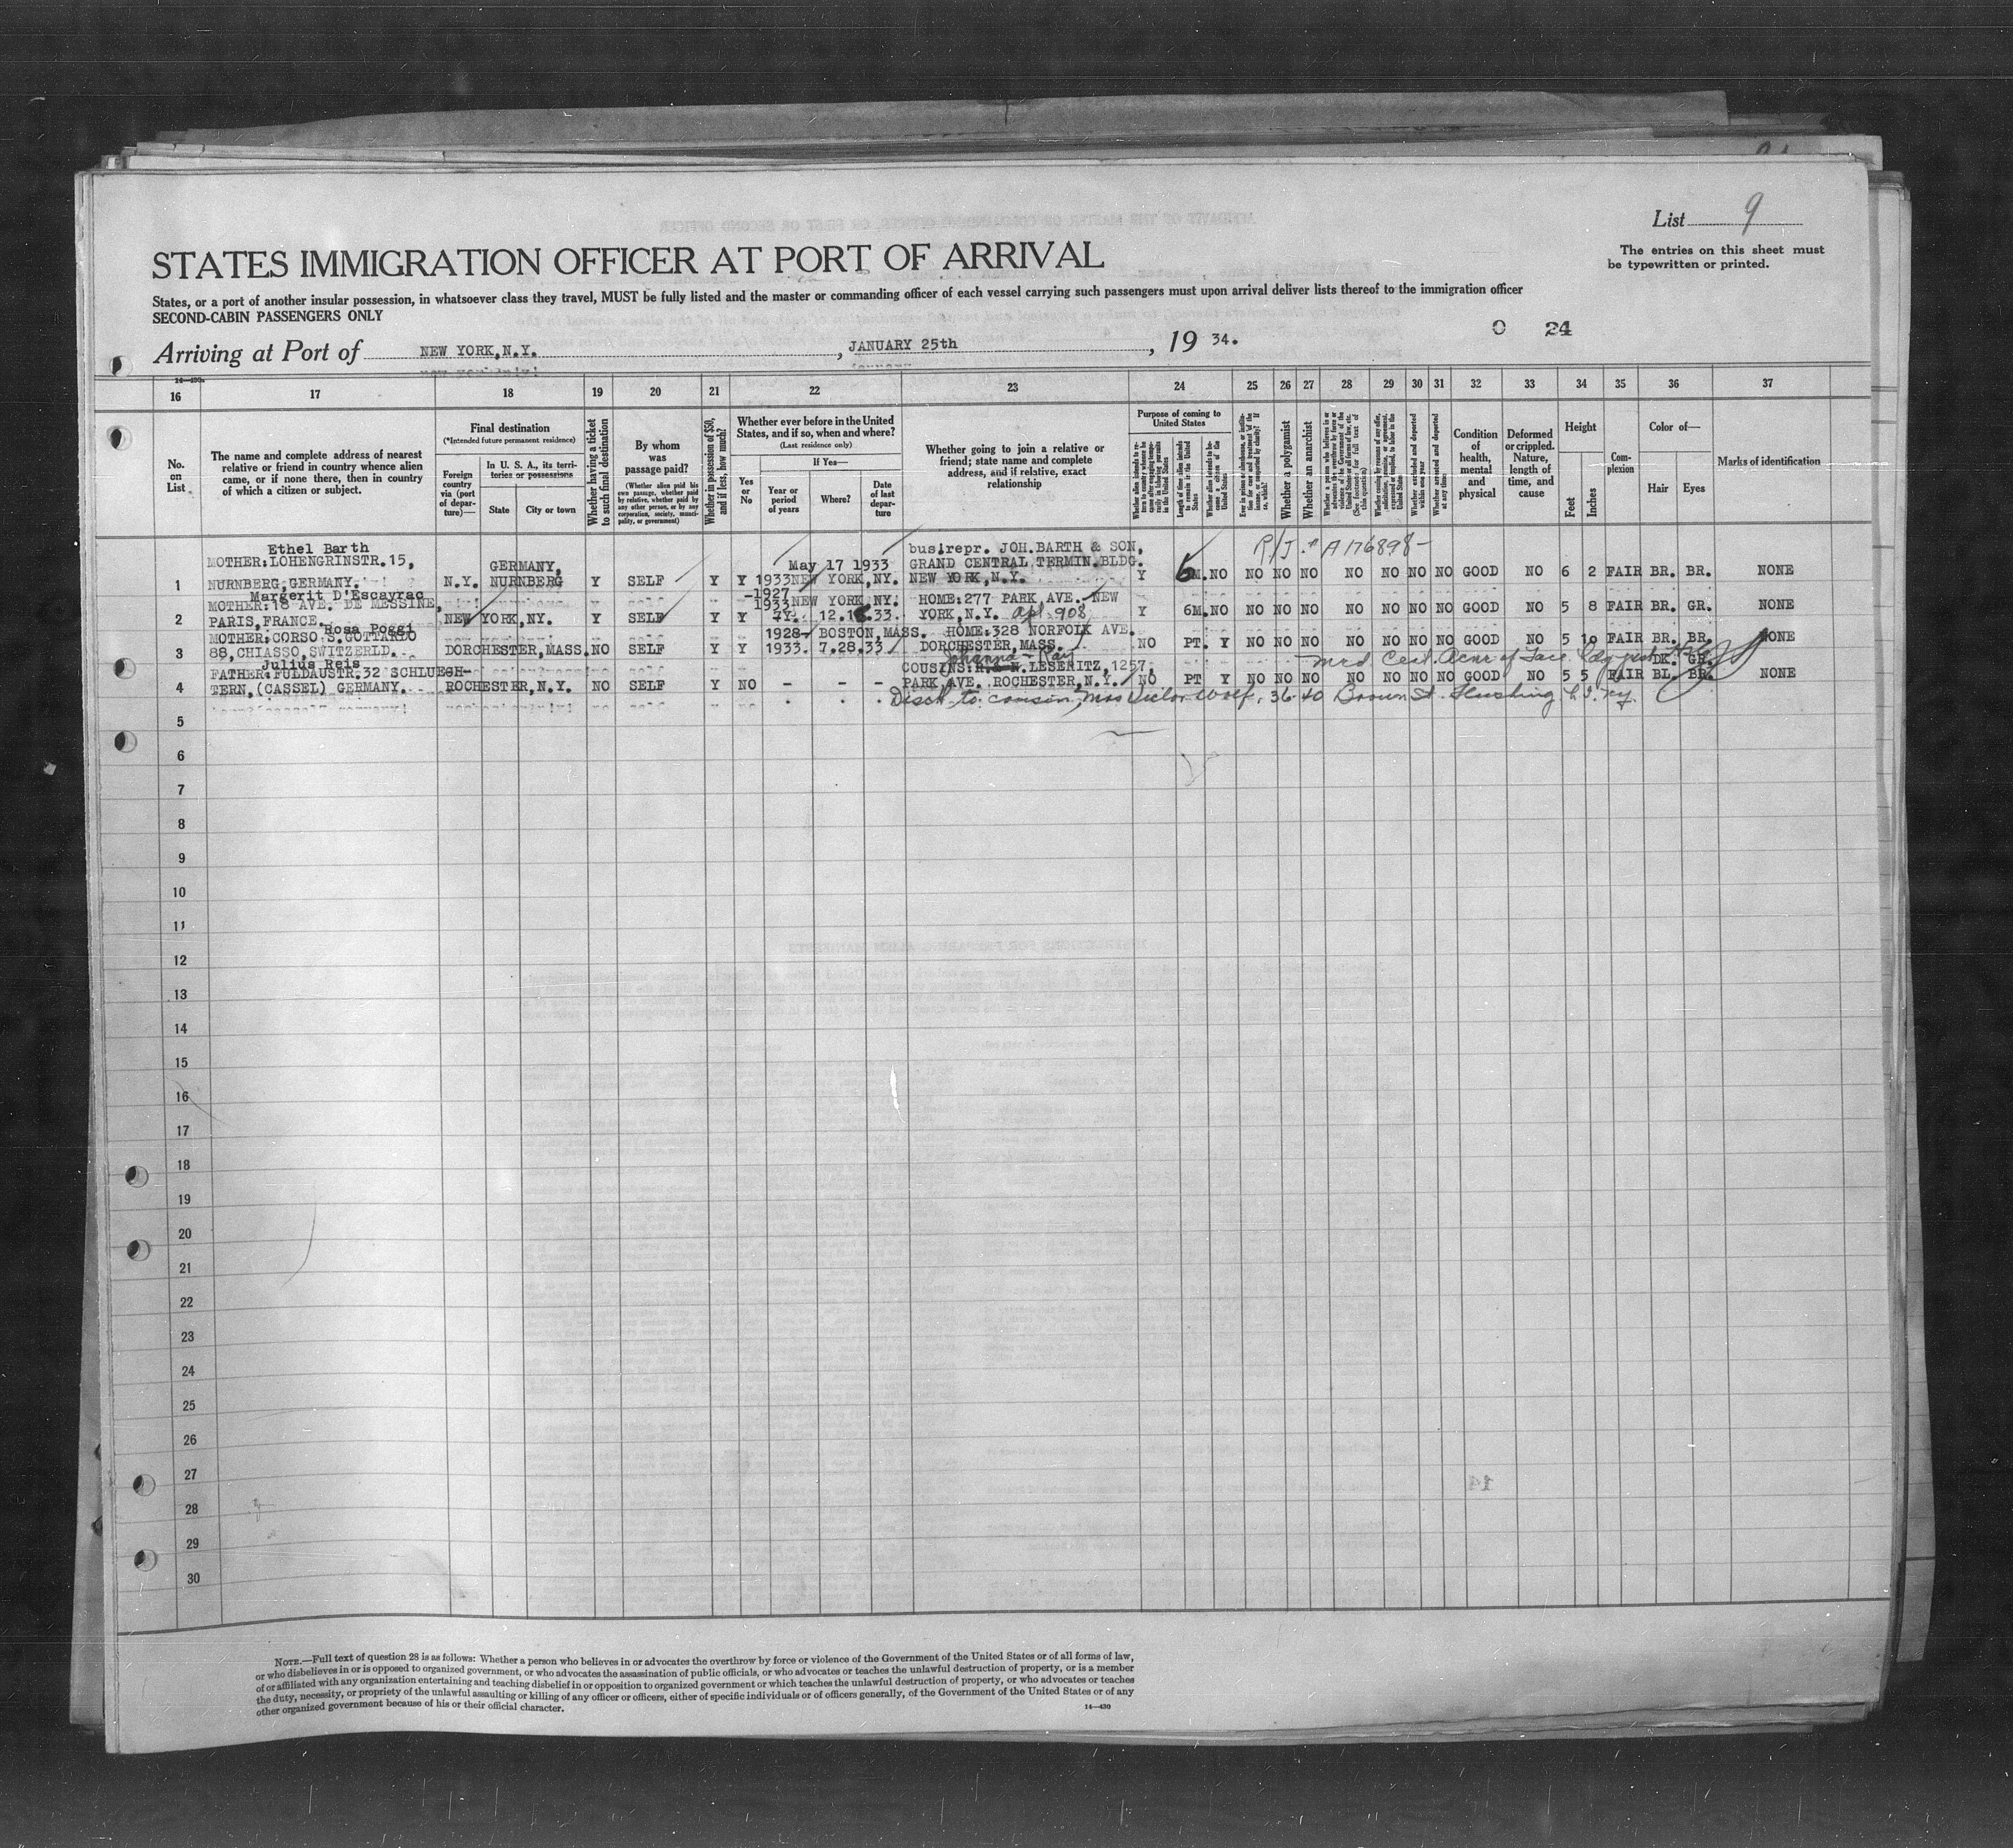 List 9
The entries on this sheet must
be typewritten or printed.
STATES IMMIGRATION OFFICER AT PORT OF ARRIVAL
States, or a port of another insular possession, in whatsoever class they travel, MUST be fully listed and the master or commanding officer of each vessel carrying such passengers must upon arrival deliver lists thereof to the immigration officer
SECOND-CABIN PASSENGERS ONLY
0 24
Arriving at Port of NEW YORK,N.Y. , JANUARY 25th , 19 34.
14—430
16 17 18 19 20 21 22 23 24 25 26 27 28 29 30 31 32 33 34 35 36 37
No.
on
List
The name and complete address of nearest
relative or friend in country whence alien
came, or if none there, then in country
of which a citizen or subject.
Final destination
(*Intended future permanent residence)
Foreign
country
via (port
of depar-
ture)—
In U. S. A., its terri-
tories or possessions
State
City or town
Whether having a ticket
to such final destination
By whom
was
passage paid?
(Whether alien paid his
own passage, whether paid
by relative, whether paid by
any other person, or by any
corporation, society, munici-
pality, or government)
Whether in possession of $50,
and if less, how much?
Whether ever before in the United
States, and if so, when and where?
(Last residence only)
If Yes—
Yes
or
No
Year or
period
of years
Where?
Date
of last
depar-
ture
Whether going to join a relative or
friend; state name and complete
address, and if relative, exact
relationship
Purpose of coming to
United States
Whether a polygamist
Whether an anarchist
Whether arrested and deported
at any time
Condition
of
health,
mental
and
physical
Deformed
or crippled.
Nature,
length of
time, and
cause
Height
Feet
Inches
Com-
plexion
Color of—
Hair
Eyes
Marks of identification
Ethel Barth
MOTHER:LOHENGRINSTR.15,
GERMANY,
May 17 1933
bus.repr. JOH.BARTH & SON,
GRAND CENTRAL TERMIN.BLDG.
R/J # A176898-
1 NURNBERG,GERMANY. N.Y. NURNBERG Y SELF Y Y 1933 NEW YORK,NY. NEW YORK,N.Y. Y 6M. NO NO NO NO NO NO NO NO GOOD NO 6 2 FAIR BR. BR. NONE
Margerit D'Escayrac
MOTHER:18 AVE. DE MESSINE,
-1927
1933 NEW YORK NY. HOME:277 PARK AVE. NEW
2 PARIS,FRANCE. NEW YORK,NY. Y SELF Y Y 7Y. 12.18.33. YORK,N.Y. apt 908 Y 6M. NO NO NO NO NO NO NO NO GOOD NO 5 8 FAIR BR. GR. NONE
Rosa Poggi
MOTHER:CORSO S.GOTTARDO
1928- BOSTON,MASS. HOME:328 NORFOLK AVE.
3 88,CHIASSO,SWITZERLD. DORCHESTER,MASS. NO SELF Y Y 1933. 7.28.33. DORCHESTER,MASS. NO PT. Y NO NO NO NO NO NO NO GOOD NO 5 10 FAIR BR. BR. NONE
Julius Reis
FATHER:FULDAUSTR.32 SCHLUEGH-
Johanna
COUSINS: LESERITZ,1257
Med Cert. Acne of Face
DK. GR.
4 TERN,(CASSEL) GERMANY. ROCHESTER,N.Y. NO SELF Y NO - - - PARK AVE. ROCHESTER,N.Y. NO PT Y NO NO NO NO NO NO NO GOOD NO 5 5 FAIR BL. BR. NONE
Disch to cousin, Mrs Victor Wolf, 36-40 Brown St. Flushing L.I. NY.
5
6
7
8
9
10
11
12
13
14
15
16
17
18
19
20
21
22
23
24
25
26
27
28
29
30
NOTE.—Full text of question 28 is as follows: Whether a person who believes in or advocates the overthrow by force or violence of the Government of the United States or of all forms of law,
or who disbelieves in or is opposed to organized government, or who advocates the assassination of public officials, or who advocates or teaches the unlawful destruction of property, or is a member
of or affiliated with any organization entertaining and teaching disbelief in or opposition to organized government or which teaches the unlawful destruction of property, or who advocates or teaches
the duty, necessity, or propriety of the unlawful assaulting or killing of any officer or officers, either of specific individuals or of officers generally, of the Government of the United States or of any
other organized government because of his or their official character.
14—430